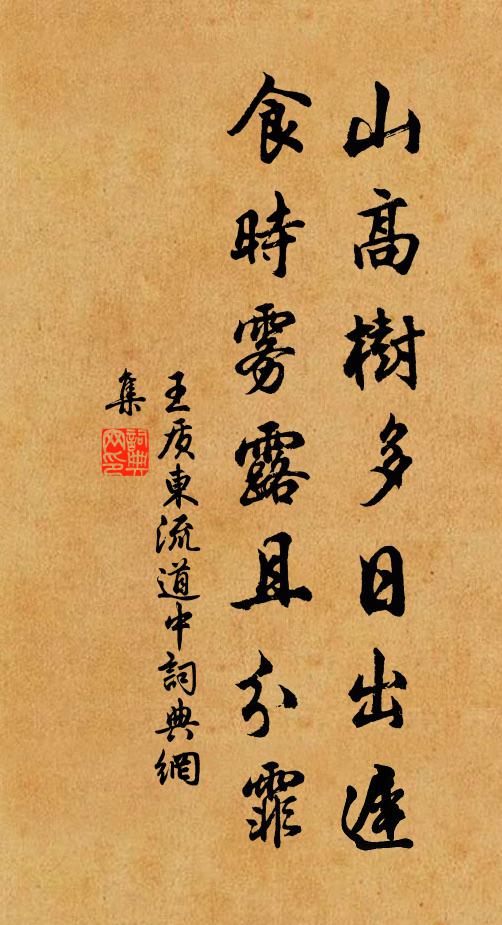 山高樹多日出遲
食時雾露且分霏
王质東流道中詞典網
集
詞典
网印